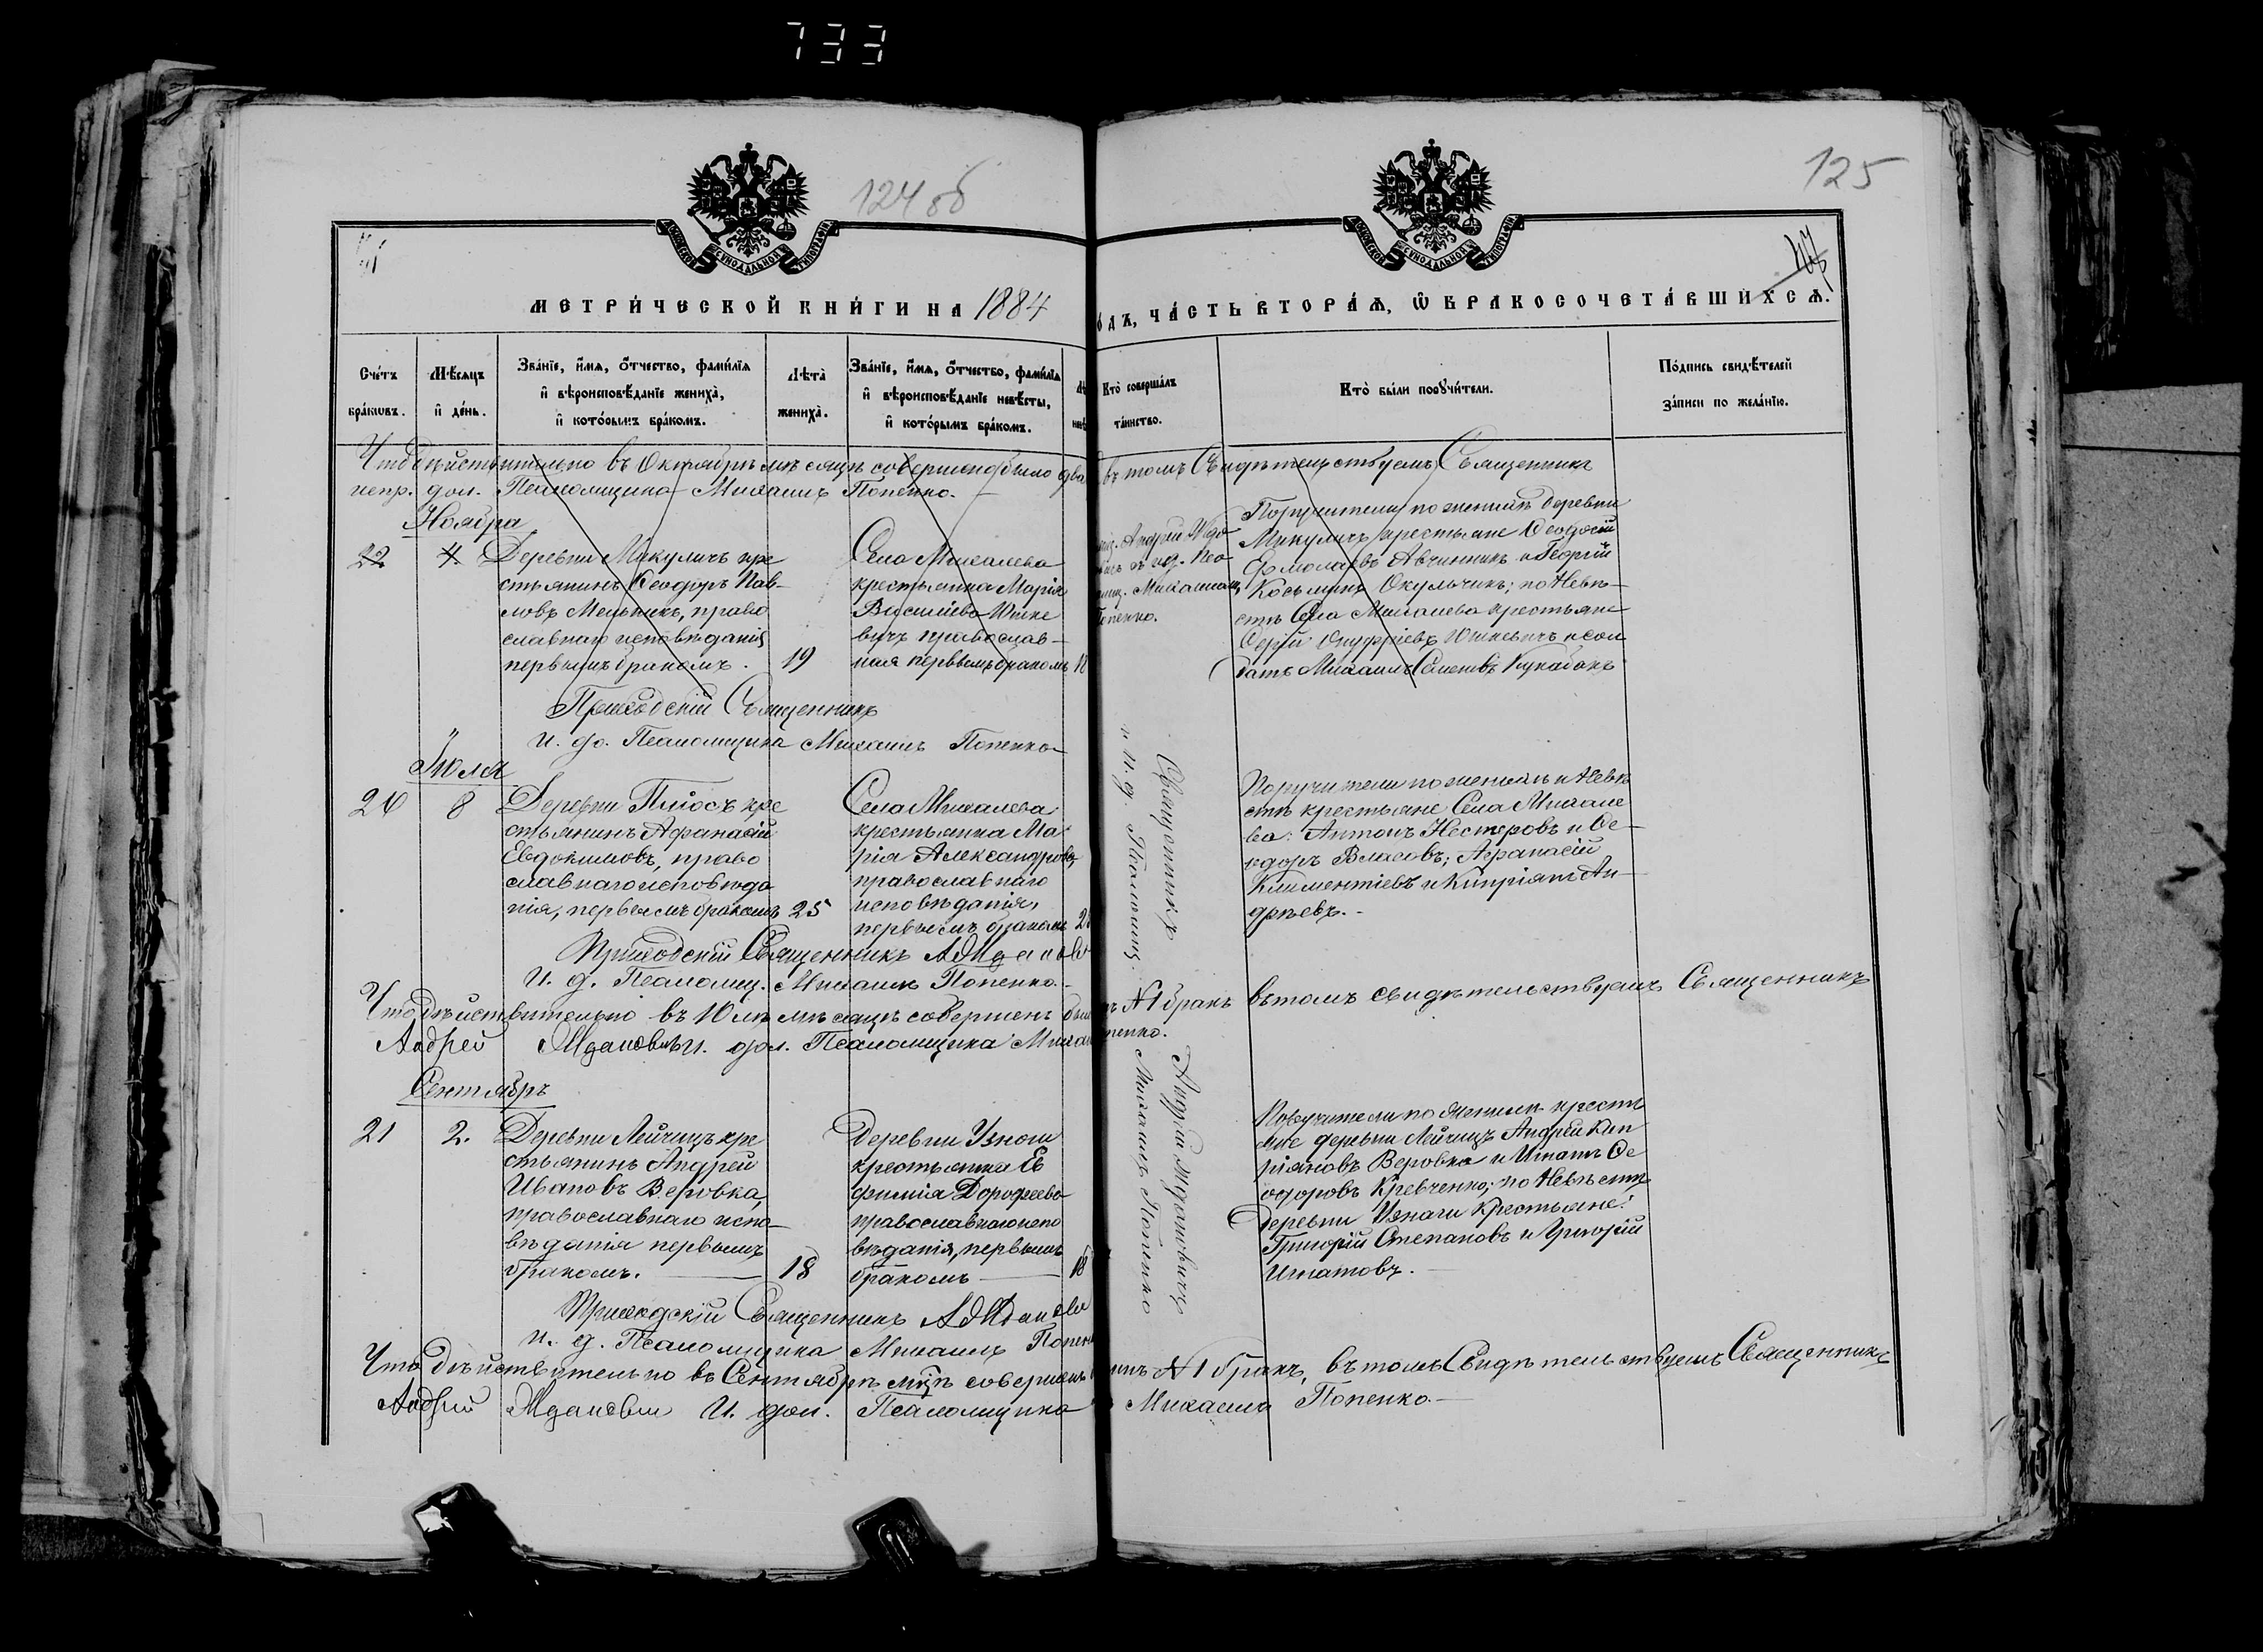 733
124 об
125
МОСКОВСКОЙ СѴНОДАЛЬНОЙ ТИПОГРАФІИ
МОСКОВСКОЙ СѴНОДАЛЬНОЙ ТИПОГРАФІИ
МЕТРИ́ЧЕСКОЙ КНИ́ГИ НА 1884
ОДЪ, ЧА́СТЬ ВТОРА́Ѧ, Ѿ БРАКОСОЧЕТА́ВШИХСѦ.
Сче́тъ бра́кѡвъ.
Мѣ́сяцъ и҆ де́нь.
Зва́нїе, и҆́мѧ, ѻ҆́тчество, фами́лїѧ
и҆ вѣроисповѣ́данїе жениха̀,
и҆ кото́рымъ бра́комъ.
Лѣта̀ жениха̀.
Зва́нїе, и҆́мѧ, ѻ҆́тчество, фами́лїѧ
и҆ вѣроисповѣ́данїе невѣ́сты,
и҆ кото́рымъ бра́комъ.
Кто̀ соверша́лъ
та́инство.
Кто̀ бы́ли порꙋчи́тели.
По́дпись свидѣ́телей
за́писи по жела́нїю.
Что дѣйствительно въ Октябрѣ мѣсяцѣ совершено было два
въ томъ Свидѣтельствуемъ Священникъ
испр. дол. Псаломщика Михаилъ Попенко.
Ноября
22 4
Деревни Микуличъ кре
стьянинъ Ѳеодоръ Пав-
ловъ Мельникъ, право
славнаго исповѣданія
первымъ бракомъ.
19
Села Михалева
крестьянка Марія
Василіева Юшке
вичъ православ-
ная первымъ бракомъ
Поручители по женихѣ деревни
Микуличъ крестьяне Ѳеодосій
Ермолаевъ Авчинникъ и Георгій
Косьминъ Окульчикъ; по Невѣ-
стѣ Села Михалева крестьяне
Сергій Онуфріевъ Юшкевичъ и сол
датъ Михаилъ Семеновъ
Приходскій Священникъ
и. до. Псаломщика Михаилъ Попенко
Іюля
20 8
Деревни кре
стьянинъ Афанасій
Евдокимовъ, право
славнаго исповѣда
нія, первымъ бракомъ 25
Села Михалева
крестьянка Ма
рія Александрова,
православнаго
исповѣданія,
первымъ бракомъ
Священникъ Андрей Ждановичъ
и И. д. Псаломщ. Михаилъ Попенко
Поручители по женихѣ и Невѣ
стѣ крестьяне Села Михале
ва: Антонъ Несторовъ и Ѳе-
одоръ Власовъ; Афанасій
Климентіевъ и Кипріянъ Ан-
дреевъ.
Приходскій Священникъ А Жданови
И. д. Псаломщ. Михаилъ Попенко.
Что дѣйствительно въ Юлѣ мѣсяцѣ совершенъ былъ
№ 1 бракъ въ томъ свидѣтельствуемъ Священникъ
Андрей Жданович И. дол. Псаломщика Михаилъ
Попенко.
Сентябрь
21 2.
Деревни Лейчицъ кре
стьянинъ Андрей
Ивановъ Веровка,
православнаго испо-
вѣданія первымъ
бракомъ. 18
Деревни Узноги
крестьянка Ев
фимія Дорофеева
православнаго испо
вѣданія, первымъ
бракомъ 18
Поручители по Женихѣ кресть
яне деревни Лейчицъ Андрей Кип
ріяновъ Веровка и Игнатъ Ѳе
одоровъ Кревченко; по Невѣстѣ
Деревни Узноги крестьяне:
Григорій Степановъ и Григорій
Игнатовъ.
Приходскій Священникъ А Жданови
И. д. Псаломщика Михаилъ Попенко
Что дѣйствительно въ Сентябрѣ мцѣ совершенъ
№ 1 бракъ, въ томъ Свидѣтельствуемъ Священникъ
Андрей Жданович И. дол. Псаломщика
Михаилъ Попенко.